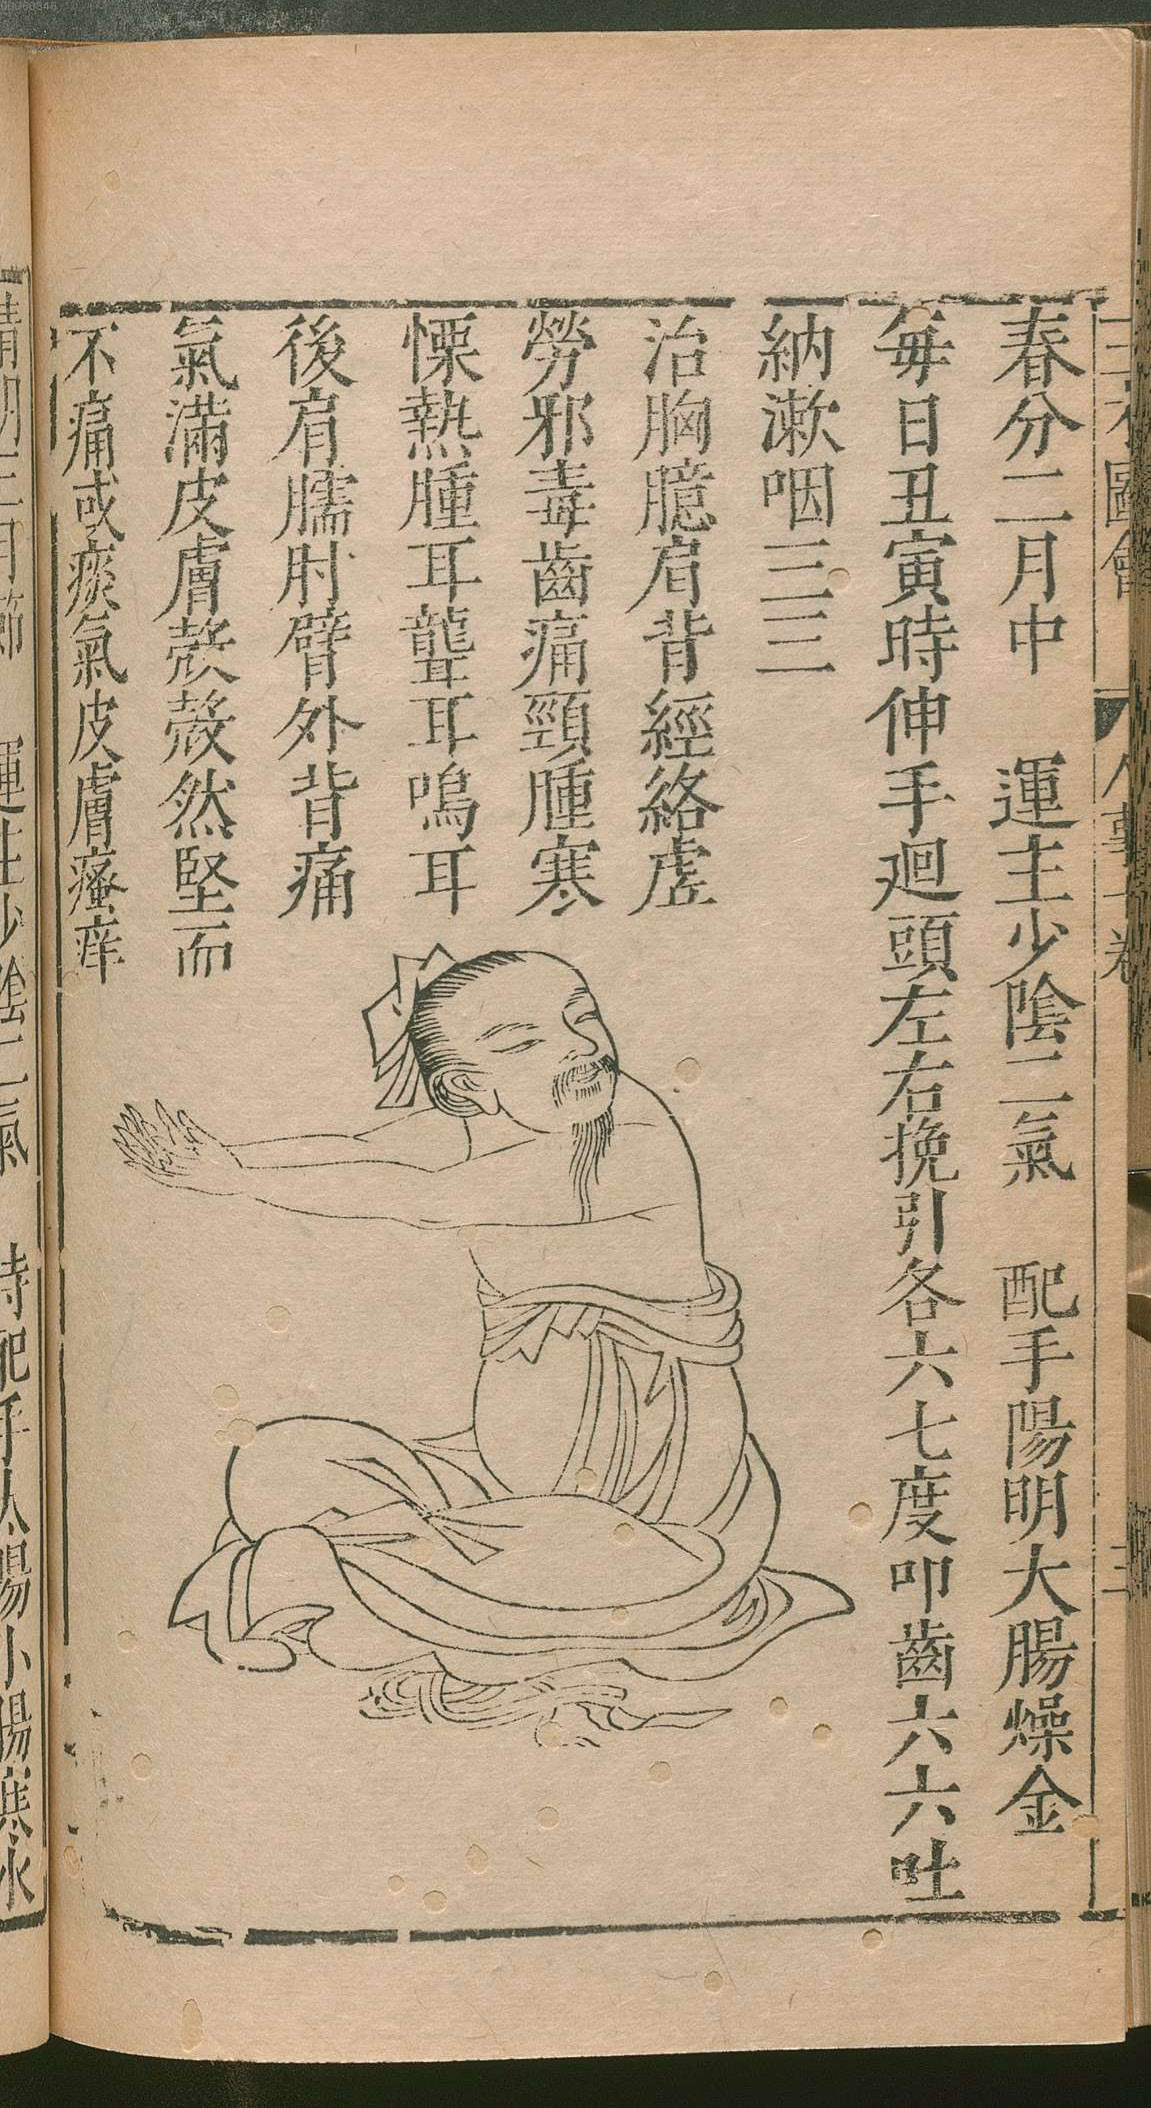 春分二月中　運主少陰二氣　配手陽明大腸燥金
每日丑寅時伸手迴頭左右挽引各六七度叩齒六六吐
納漱咽三三
治胸臆肩背經絡虛
勞邪毒齒痛頸腫寒
慄熱腫耳聾耳鳴耳
後肩臑肘臂外背痛
氣滿皮膚殼殼然堅而
不痛或痰氣皮膚瘙痒
清明三月節　運主少陰二氣　時配手太陽小腸寒水